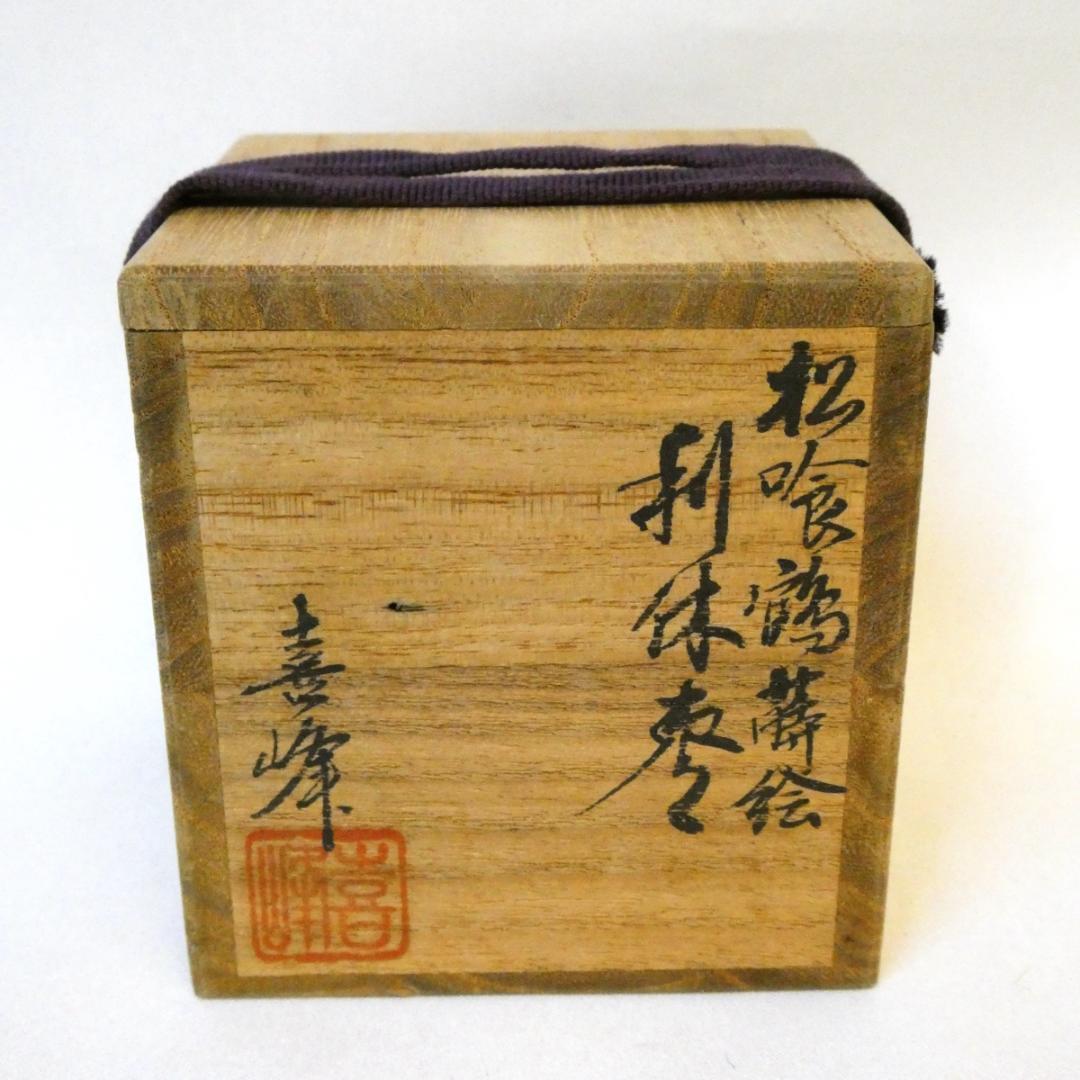 松喰鶴蒔絵
利休棗
喜峰
喜峰